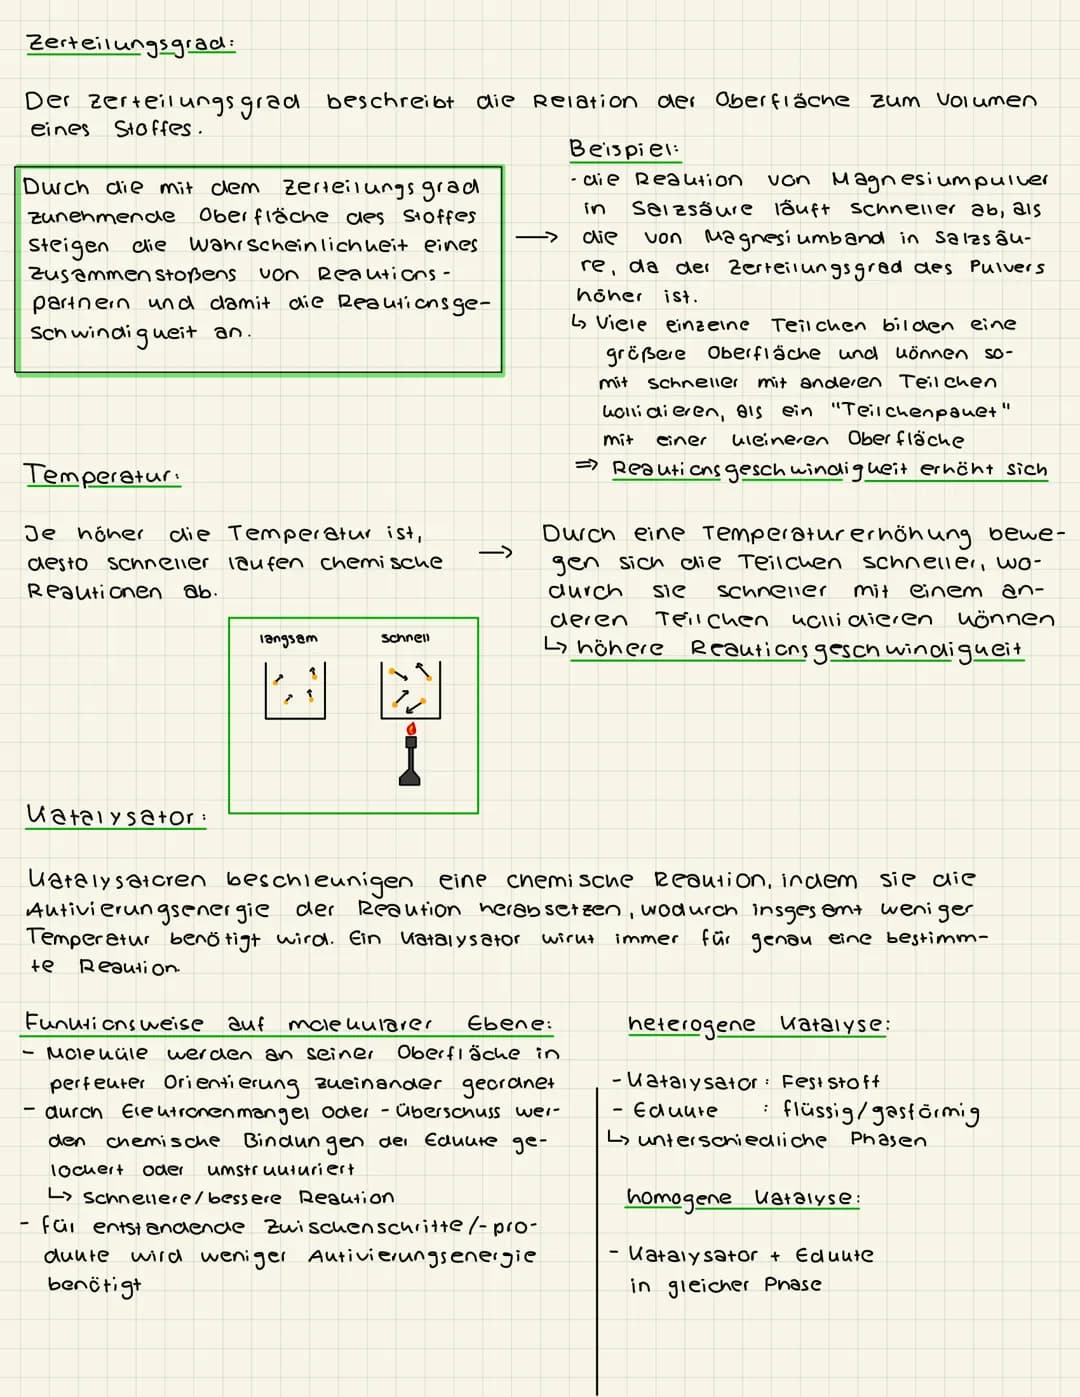 Zerteilungsgrad:
Der Zerteilungsgrad beschreibt die Relation der Oberfläche zum Volumen
eines Stoffes.
Durch die mit dem Zerteilungsgrad
zunehmende Oberfläche des Stoffes
steigen die Wahrscheinlichkeit eines
Zusammenstoßens von Reaktions-
partnern und damit die Reaktionsge-
schwindigkeit an.
→
Beispiel:
- die Reaktion von Magnesiumpulver
in Salzsäure läuft schneller ab, als
die von Magnesiumband in Salzsäu-
re, da der Zerteilungsgrad des Pulvers
höher ist.
↳ Viele einzelne Teilchen bilden eine
größere Oberfläche und können so-
mit schneller mit anderen Teilchen
kollidieren, als ein "Teilchenpaket"
mit einer kleineren Oberfläche
⇒ Reaktionsgeschwindigkeit erhöht sich
Temperatur:
Je höher die Temperatur ist,
desto schneller laufen chemische
Reaktionen ab.
→
Durch eine Temperaturerhöhung bewe-
gen sich die Teilchen schneller, wo-
durch sie schneller mit einem an-
deren Teilchen kollidieren können
↳ höhere Reaktionsgeschwindigkeit
langsam schnell
Katalysator:
Katalysatoren beschleunigen eine chemische Reaktion, indem sie die
Aktivierungsenergie der Reaktion herabsetzen, wodurch insgesamt weniger
Temperatur benötigt wird. Ein Katalysator wirkt immer für genau eine bestimm-
te Reaktion.
Funktionsweise auf molekularer Ebene:
- Moleküle werden an seiner Oberfläche in
perfekter Orientierung zueinander geordnet
- durch Elektronenmangel oder -überschuss wer-
den chemische Bindungen der Edukte ge-
lockert oder umstrukturiert
↳ Schnellere/bessere Reaktion
- für entstandende Zwischenschritte/-pro-
dukte wird weniger Aktivierungsenergie
benötigt
heterogene Katalyse:
- Katalysator : Feststoff
- Edukte : flüssig/gasförmig
↳ unterschiedliche Phasen
homogene Katalyse:
- Katalysator + Edukte
in gleicher Phase